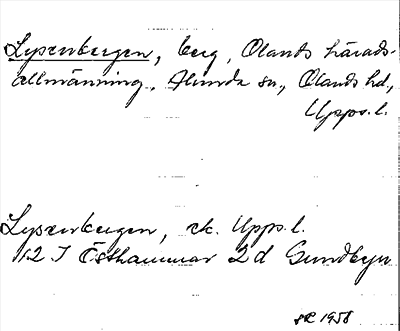 Lysenbergen, berg, Olands härads-
allmänning, Alunda sn, Olands hd,
Upps. l.
Lysenbergen, ek. Upps. l.
12 I Östhammar 2 d Gundbyn
1958